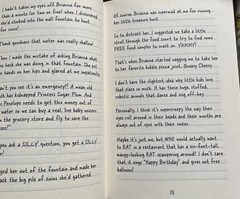 I hadn't taken my eyes off Brianna for more
than a minute (or two or five) when I discovered
she'd climbed into the mall fountain to hunt
for
Thank goodness that water was really shallow!
Then I made the mistake of asking Brianna what
the heck she was doing in that fountain. She put
her hands on her hips and glared at me impatiently.
you see it's an emergency?! A mean old
has kidnapped Princess Sugar Plum. And
Penelope needs to get this money out of
water so we can buy a real, live baby unicorn
the grocery store and fly to save the
princess!"
you ask a SILLY question, you get a SILLY
dragged her out of the fountain and made her
back the big pile of coins she'd gathered.
Of course, Brianna was supermad at me for ruining
her little treasure hunt.
So to distract her, I suggested we take a little
walk through the food court to try to find some
FREE food samples to snack on. YUMMY!
That's when Brianna started begging me to take her
to her favorite kiddie pizza joint, Queasy Cheesy.
I don't have the slightest clue why little kids love
that place so much. It has these huge, stuffed,
robotic animals that dance and sing off-key.
Personally, I think it's supercreepy the way their
eyes roll around in their heads and their mouths
are always out of sync with their voices.
Maybe it's just me, but WHO would actually
want to EAT in a restaurant that has a six-foot-tall,
mangy-looking RAT scampering around? I don't care
that it sings "Happy Birthday" and gives out free
balloons!
13